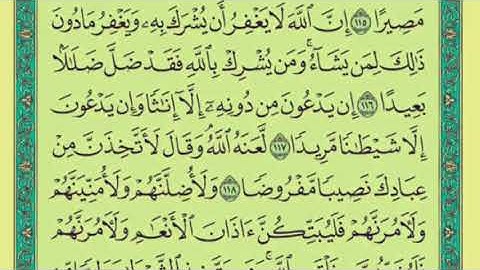 مَصِيرًا ١١٥ إِنَّ ٱللَّهَ لَا يَغْفِرُ أَن يُشْرَكَ بِهِۦ وَيَغْفِرُ مَا دُونَ
ذَٰلِكَ لِمَن يَشَآءُۚ وَمَن يُشْرِكْ بِٱللَّهِ فَقَدْ ضَلَّ ضَلَٰلًۢا
بَعِيدًا ١١٦ إِن يَدْعُونَ مِن دُونِهِۦٓ إِلَّآ إِنَٰثًا وَإِن يَدْعُونَ
إِلَّا شَيْطَٰنًا مَّرِيدًا ١١٧ لَّعَنَهُ ٱللَّهُۘ وَقَالَ لَأَتَّخِذَنَّ مِنْ
عِبَادِكَ نَصِيبًا مَّفْرُوضًا ١١٨ وَلَأُضِلَّنَّهُمْ وَلَأُمَنِّيَنَّهُمْ
وَلَءَامُرَنَّهُمْ فَلَيُبَتِّكُنَّ ءَاذَانَ ٱلْأَنْعَٰمِ وَلَءَامُرَنَّهُمْ